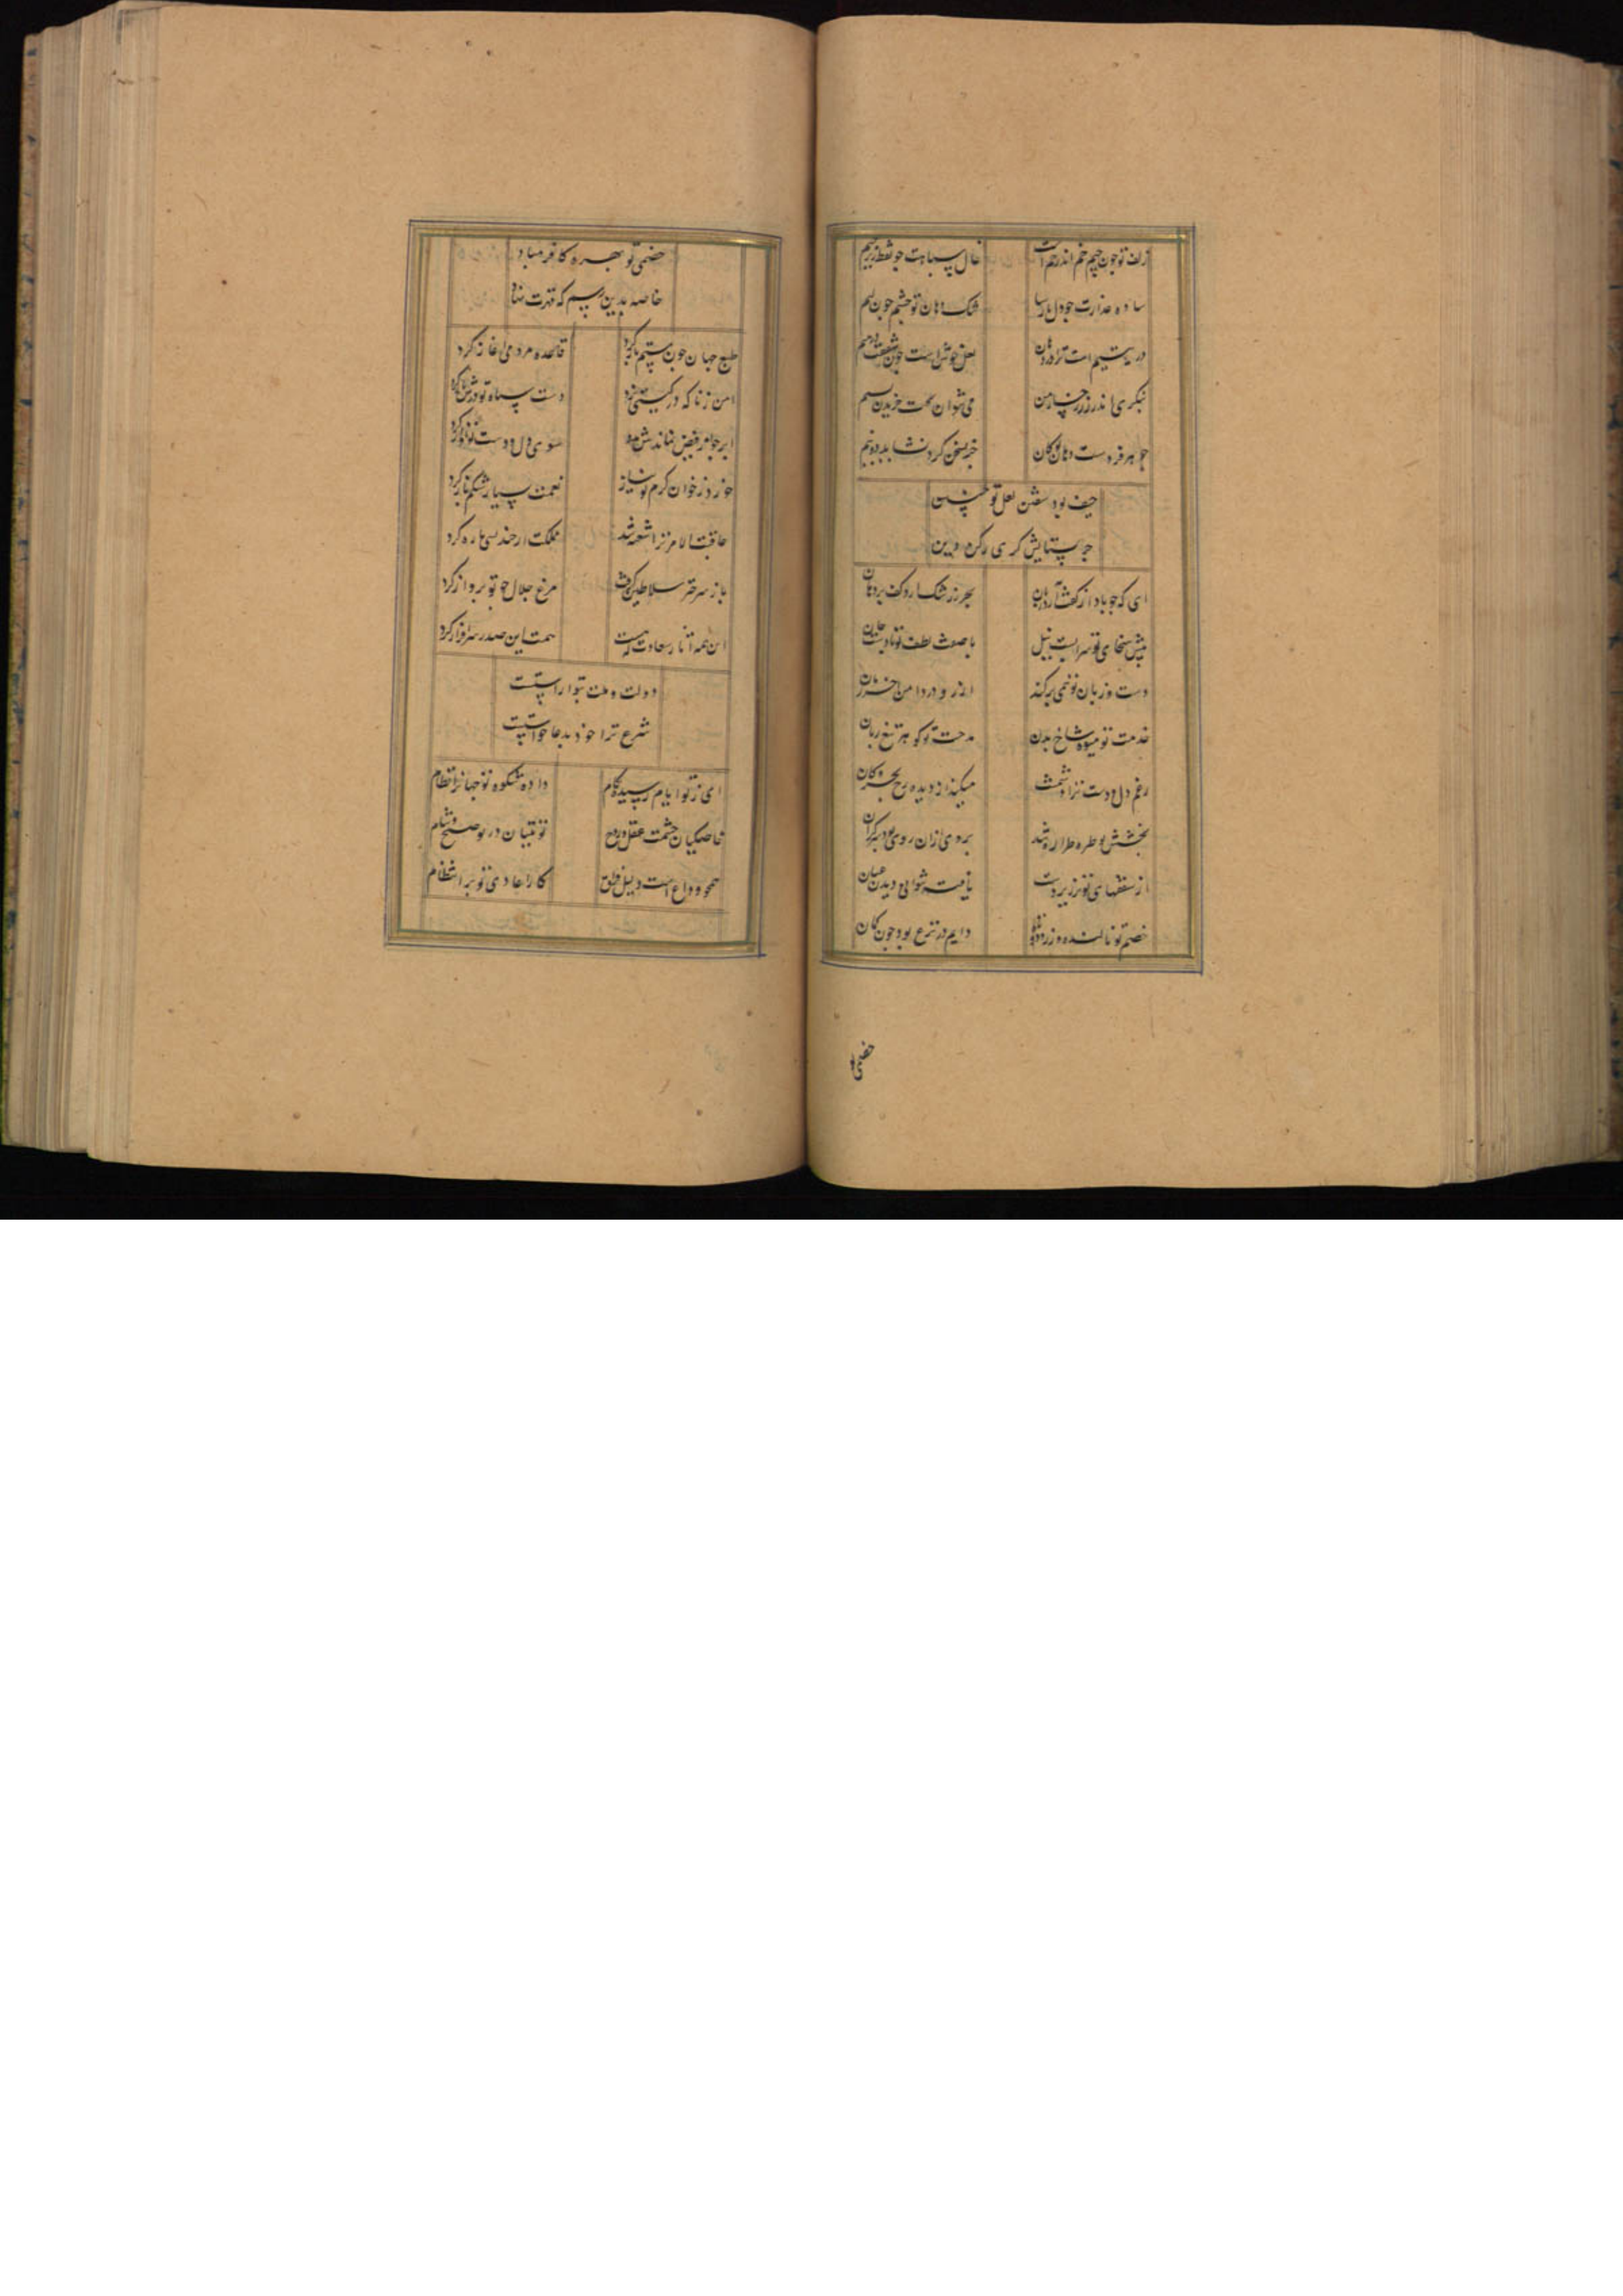 زلف تو چون جیم خم اندر خم است خال سیاهت چو نقط زیر جیم
ساده عذارت چو دل پارسا تنک دهان تو چو چشم لئیم
در یتیم است ترا در دهان لعل خوشست
ننگری اندر زر رخسار من می نتوان تحت خریدن بسیم
جوهر فردست دهان تو کان جز بسخن کرد نشاید دو نیم
حیف بود سفتن لعل تو چنین
جز بستایش کری رکن دین
ای که چو یاد از کفت آرد بیان بحر ز رشک آرد کف بر دهان
پیش سخای تو سرابست نیل با صفت لطف تو
دست وزیران تو نمی برکند از زر و در دامن آخر زمان
خدمت تو میوه شاخ بدن مدحت تو کوهر تیغ زبان
رغم دل و دست ترا
بخشش تو طره طرار شد بروی ازان روی بود
از سقطهای تو نرزیر دست یافت
خصم تو نالنده و زرد و نزار دایم در نزع بود چون کمان
خصمی تو
خصمی تو بهره کافر مباد
خاصه بدین رسم که قهرت نهاد
طبع جهان چون ستم باز کرد قاعده مردمی آغاز کرد
امن زنا که در کیتی بزد دست سیاه تو درش باز کرد
ابر چو از فیض نماندش مدد سوی دل و دست تو آواز کرد
خورد ز خوان کرم تو نیاز نعمت بسیار شکم باز کرد
عاقبت الامر ترا شعبه شد مملکت ار چند بسی ناز کرد
باز سر چتر سلاطین کرفت مرغ جلال چو تو پرواز کرد
این همه آثار سعادت که هست همت این صدر سرافراز کرد
دولت و ملت بتو آراستست
شرع ترا خود بدعا خواستست
ای ز تو ایام رسیده بکام داده شکوه تو جهانرا نظام
خاصکیان حشمت عقل و روح نوبتیان در تو صبح و شام
همچو وداع است دلیل فراق کار اعادی تو بر انتظام